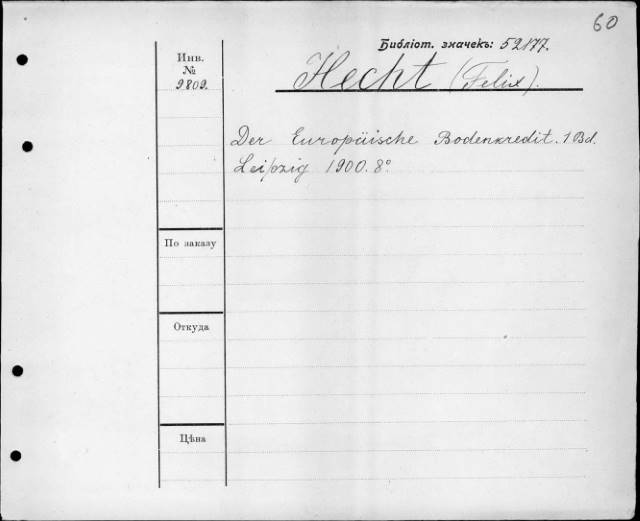 60
Библіот. значекъ: 52177.
Инв.
№
9809.
Hecht (Felix).
Der Europäische Bodenkredit. 1 Bd.
Leipzig 1900. 8°
По заказу
Откуда
Цѣна